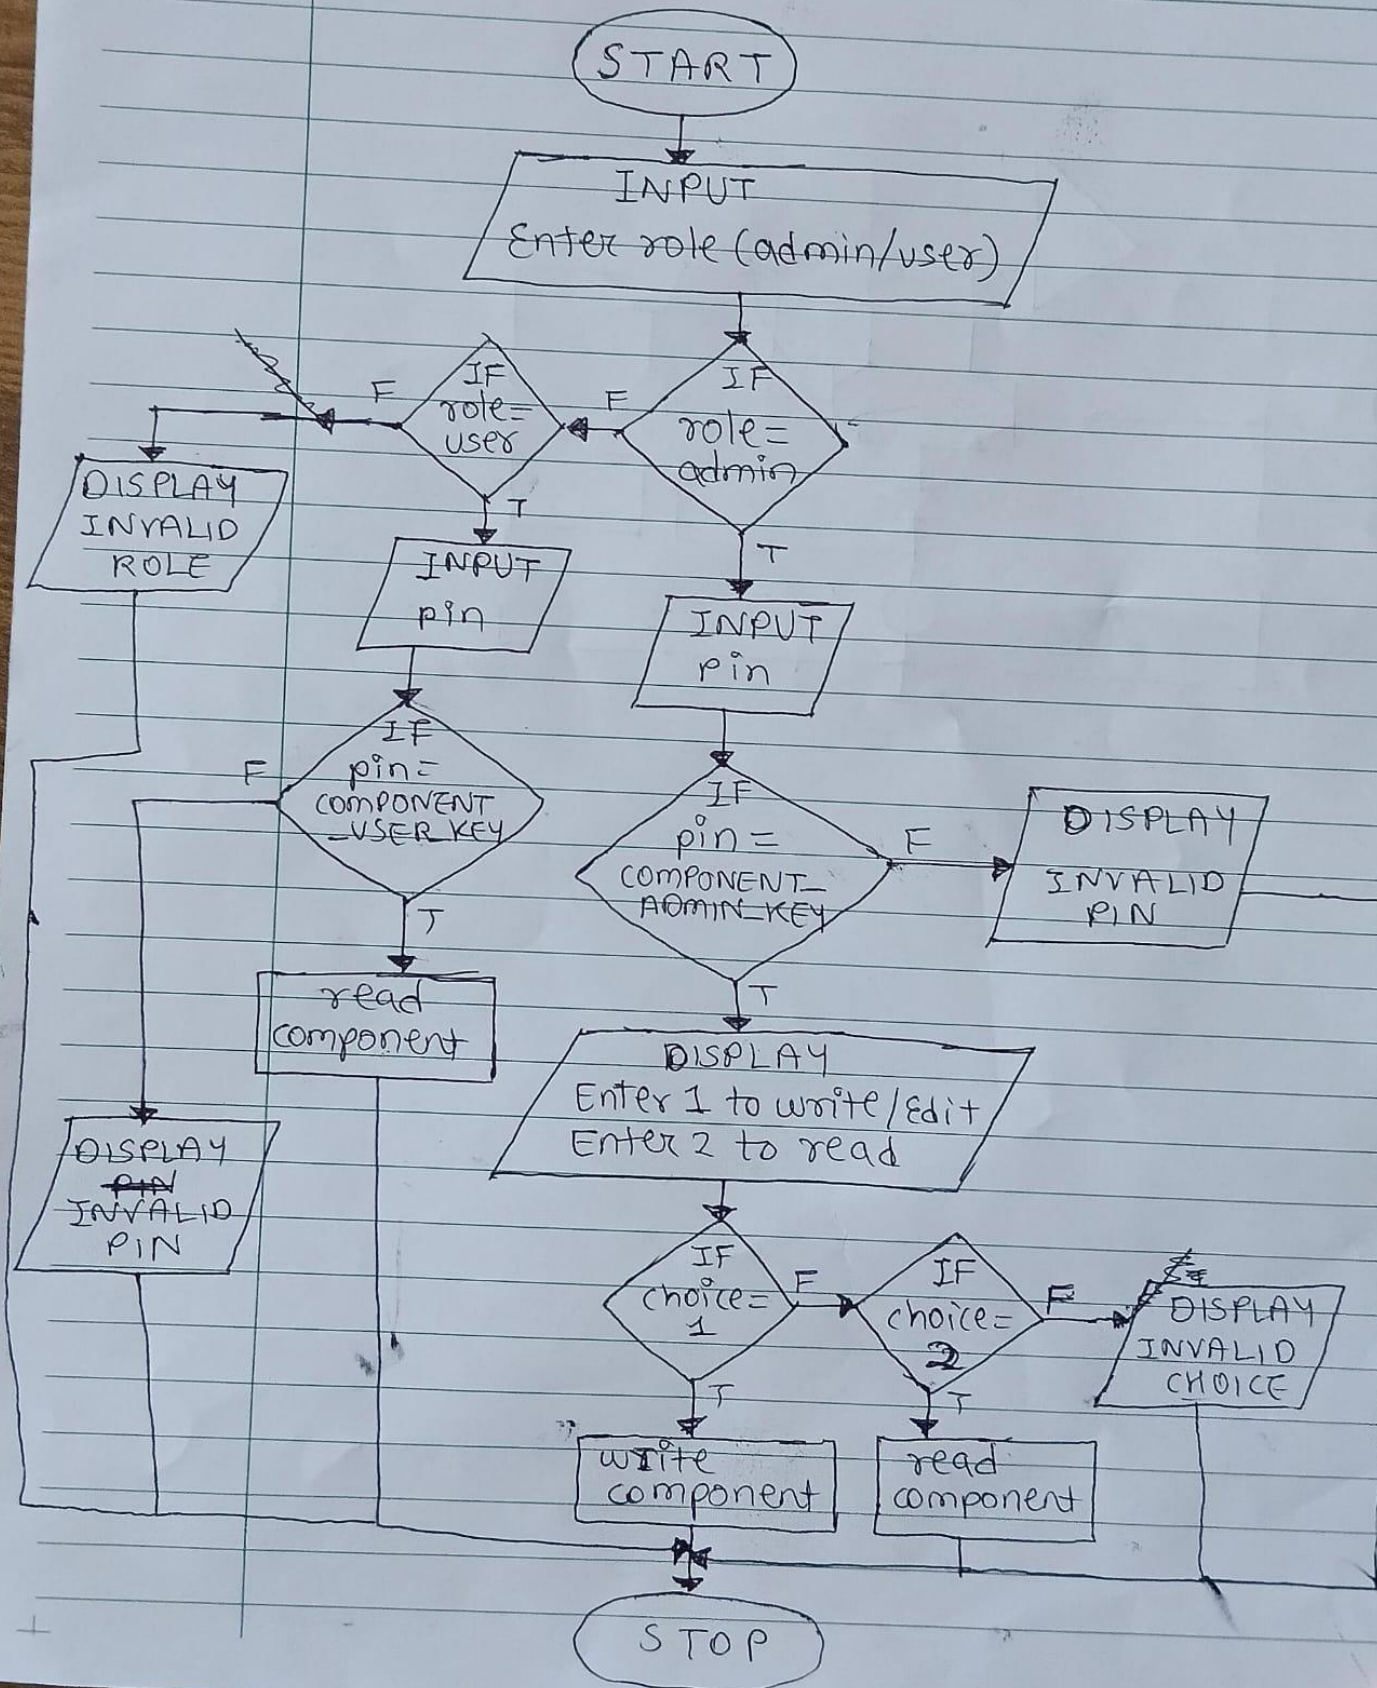 START
INPUT
Enter role (admin/user)
IF
role=
admin
F
IF
role=
user
F
DISPLAY
INVALID
ROLE
T
INPUT
pin
T
INPUT
pin
IF
pin=
COMPONENT
_USER_KEY
F
IF
pin=
COMPONENT_
ADMIN_KEY
F
DISPLAY
INVALID
PIN
T
read
component
T
DISPLAY
Enter 1 to write/Edit
Enter 2 to read
DISPLAY
PIN
INVALID
PIN
IF
choice=
1
F
IF
choice=
2
F
DISPLAY
INVALID
CHOICE
T
T
write
component
read
component
STOP